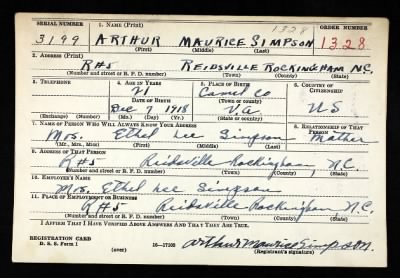 SERIAL NUMBER 1. NAME (Print) 1328 ORDER NUMBER
3199 ARTHUR MAURICE SIMPSON 1328
(First) (Middle) (Last)
2. ADDRESS (Print)
R#5 REIDSVILLE ROCKINGHAM N.C.
(Number and street or R. F. D. number) (Town) (County) (State)
3. TELEPHONE 4. AGE IN YEARS 5. PLACE OF BIRTH 6. COUNTRY OF CITIZENSHIP
21 Co
DATE OF BIRTH (Town or county)
Dec 7 1918 VA US
(Exchange) (Number) (Mo.) (Day) (Yr.) (State or country)
7. NAME OF PERSON WHO WILL ALWAYS KNOW YOUR ADDRESS 8. RELATIONSHIP OF THAT PERSON
Mrs. Ethel Lee Simpson Mother
(Mr., Mrs., Miss) (First) (Middle) (Last)
9. ADDRESS OF THAT PERSON
R#5 Reidsville Rockingham N.C.
(Number and street or R. F. D. number) (Town) (County) (State)
10. EMPLOYER'S NAME
Mrs. Ethel Lee Simpson
11. PLACE OF EMPLOYMENT OR BUSINESS
R#5 Reidsville Rockingham N.C.
(Number and street or R. F. D. number) (Town) (County) (State)
I AFFIRM THAT I HAVE VERIFIED ABOVE ANSWERS AND THAT THEY ARE TRUE.
REGISTRATION CARD
D. S. S. Form 1 (over) 16—17105 Arthur Maurice Simpson
(Registrant's signature)